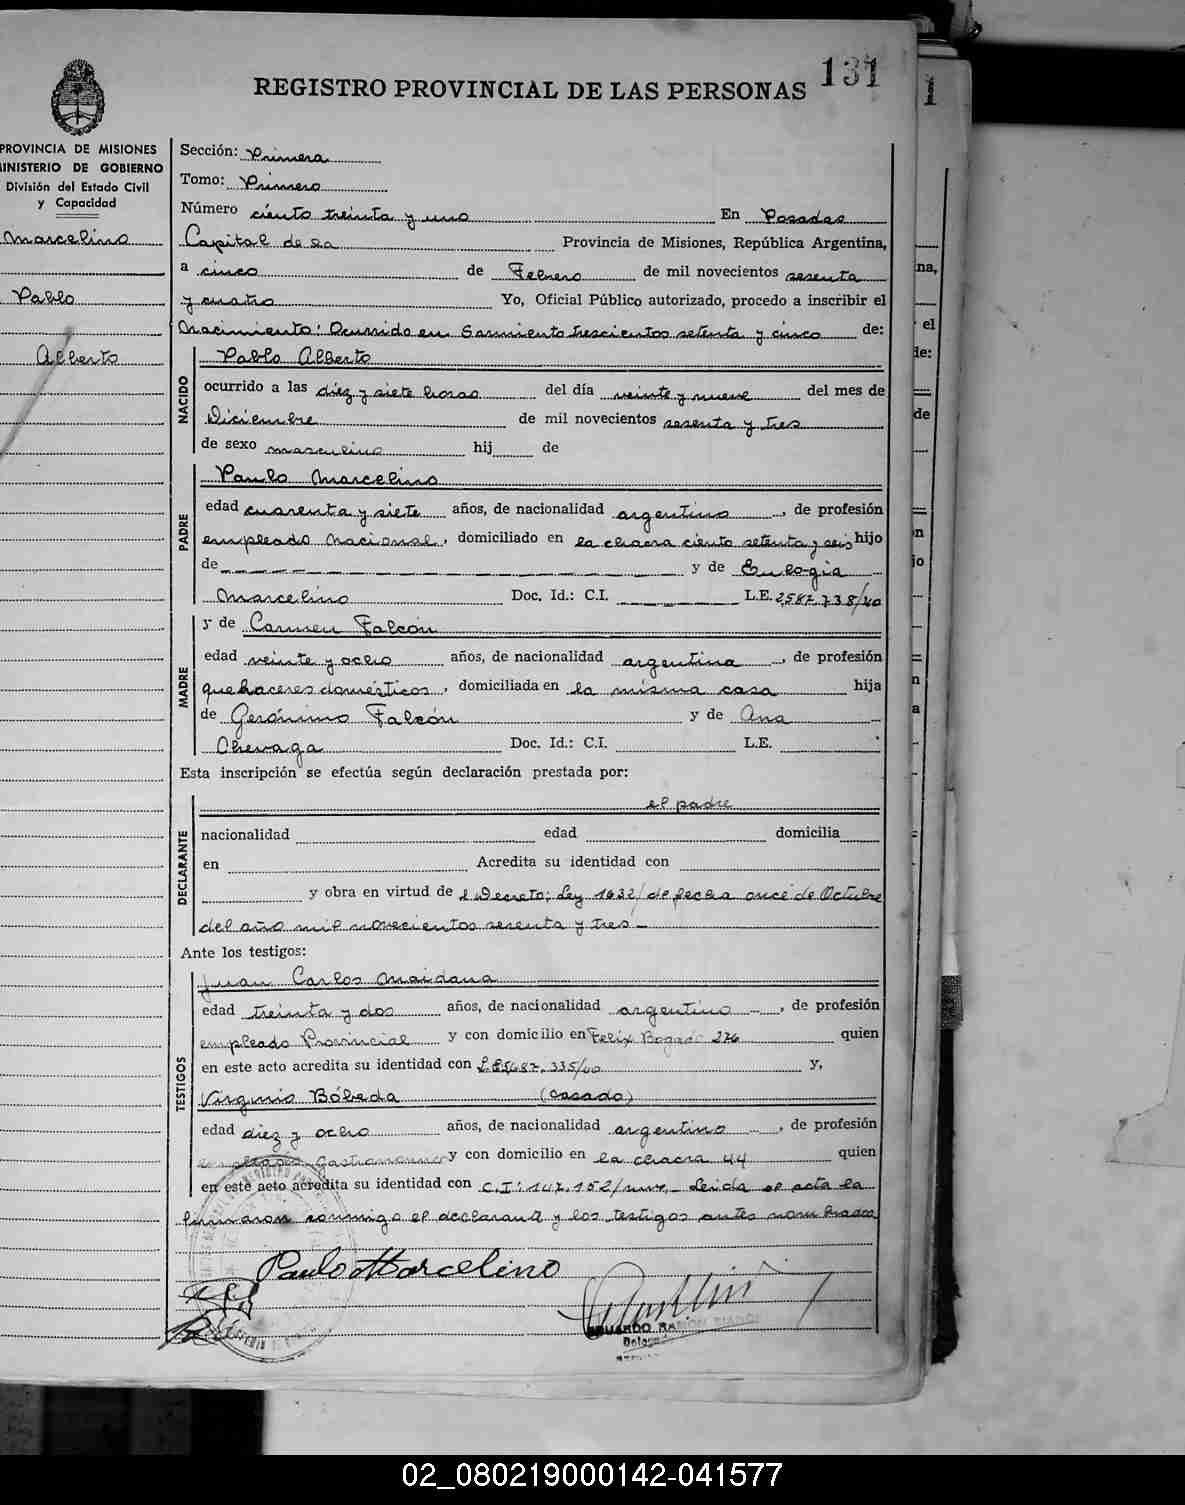 131
REGISTRO PROVINCIAL DE LAS PERSONAS
PROVINCIA DE MISIONES
MINISTERIO DE GOBIERNO
División del Estado Civil
y Capacidad
Marcelino
Pablo
Alberto
Sección: Primera
Tomo: Primero
Número ciento treinta y uno En Posadas
Capital de la Provincia de Misiones, República Argentina,
a cinco de Febrero de mil novecientos sesenta
y cuatro Yo, Oficial Público autorizado, procedo a inscribir el
Nacimiento: Ocurrido en Sarmiento trescientos setenta y cinco de:
NACIDO
Pablo Alberto
ocurrido a las diez y siete horas del día veinte y nueve del mes de
Diciembre de mil novecientos sesenta y tres
de sexo masculino hij de
PADRE
Paulo Marcelino
edad cuarenta y siete años, de nacionalidad argentino, de profesión
empleado Nacional, domiciliado en la chacra ciento setenta y seis hijo
de y de Eulogia
Marcelino Doc. Id.: C.I. L.E. 2.587.738/40
MADRE
y de Carmen Falcón
edad veinte y ocho años, de nacionalidad argentina, de profesión
quehaceres domésticos, domiciliada en la misma casa hija
de Gerónimo Falcón y de Ana
Chevaga Doc. Id.: C.I. L.E.
Esta inscripción se efectúa según declaración prestada por:
DECLARANTE
el padre
nacionalidad edad domicilia
en Acredita su identidad con
y obra en virtud de l Decreto; Ley 1632/ de fecha once de Octubre
del año mil novecientos sesenta y tres-
Ante los testigos:
TESTIGOS
Juan Carlos Maidana
edad treinta y dos años, de nacionalidad argentino, de profesión
empleado Provincial y con domicilio en Felix Bogado 276 quien
en este acto acredita su identidad con y,
Virginio Bóbeda (casado)
edad diez y ocho años, de nacionalidad argentino, de profesión
empleado Gastronomico y con domicilio en la chacra 44 quien
en este acto acredita su identidad con C.I: 147.152/ Leída el acta la
firmaron conmigo el declarante y los testigos antes nombrados
Paulo Marcelino
EDUARDO RAMON
02_080219000142-041577